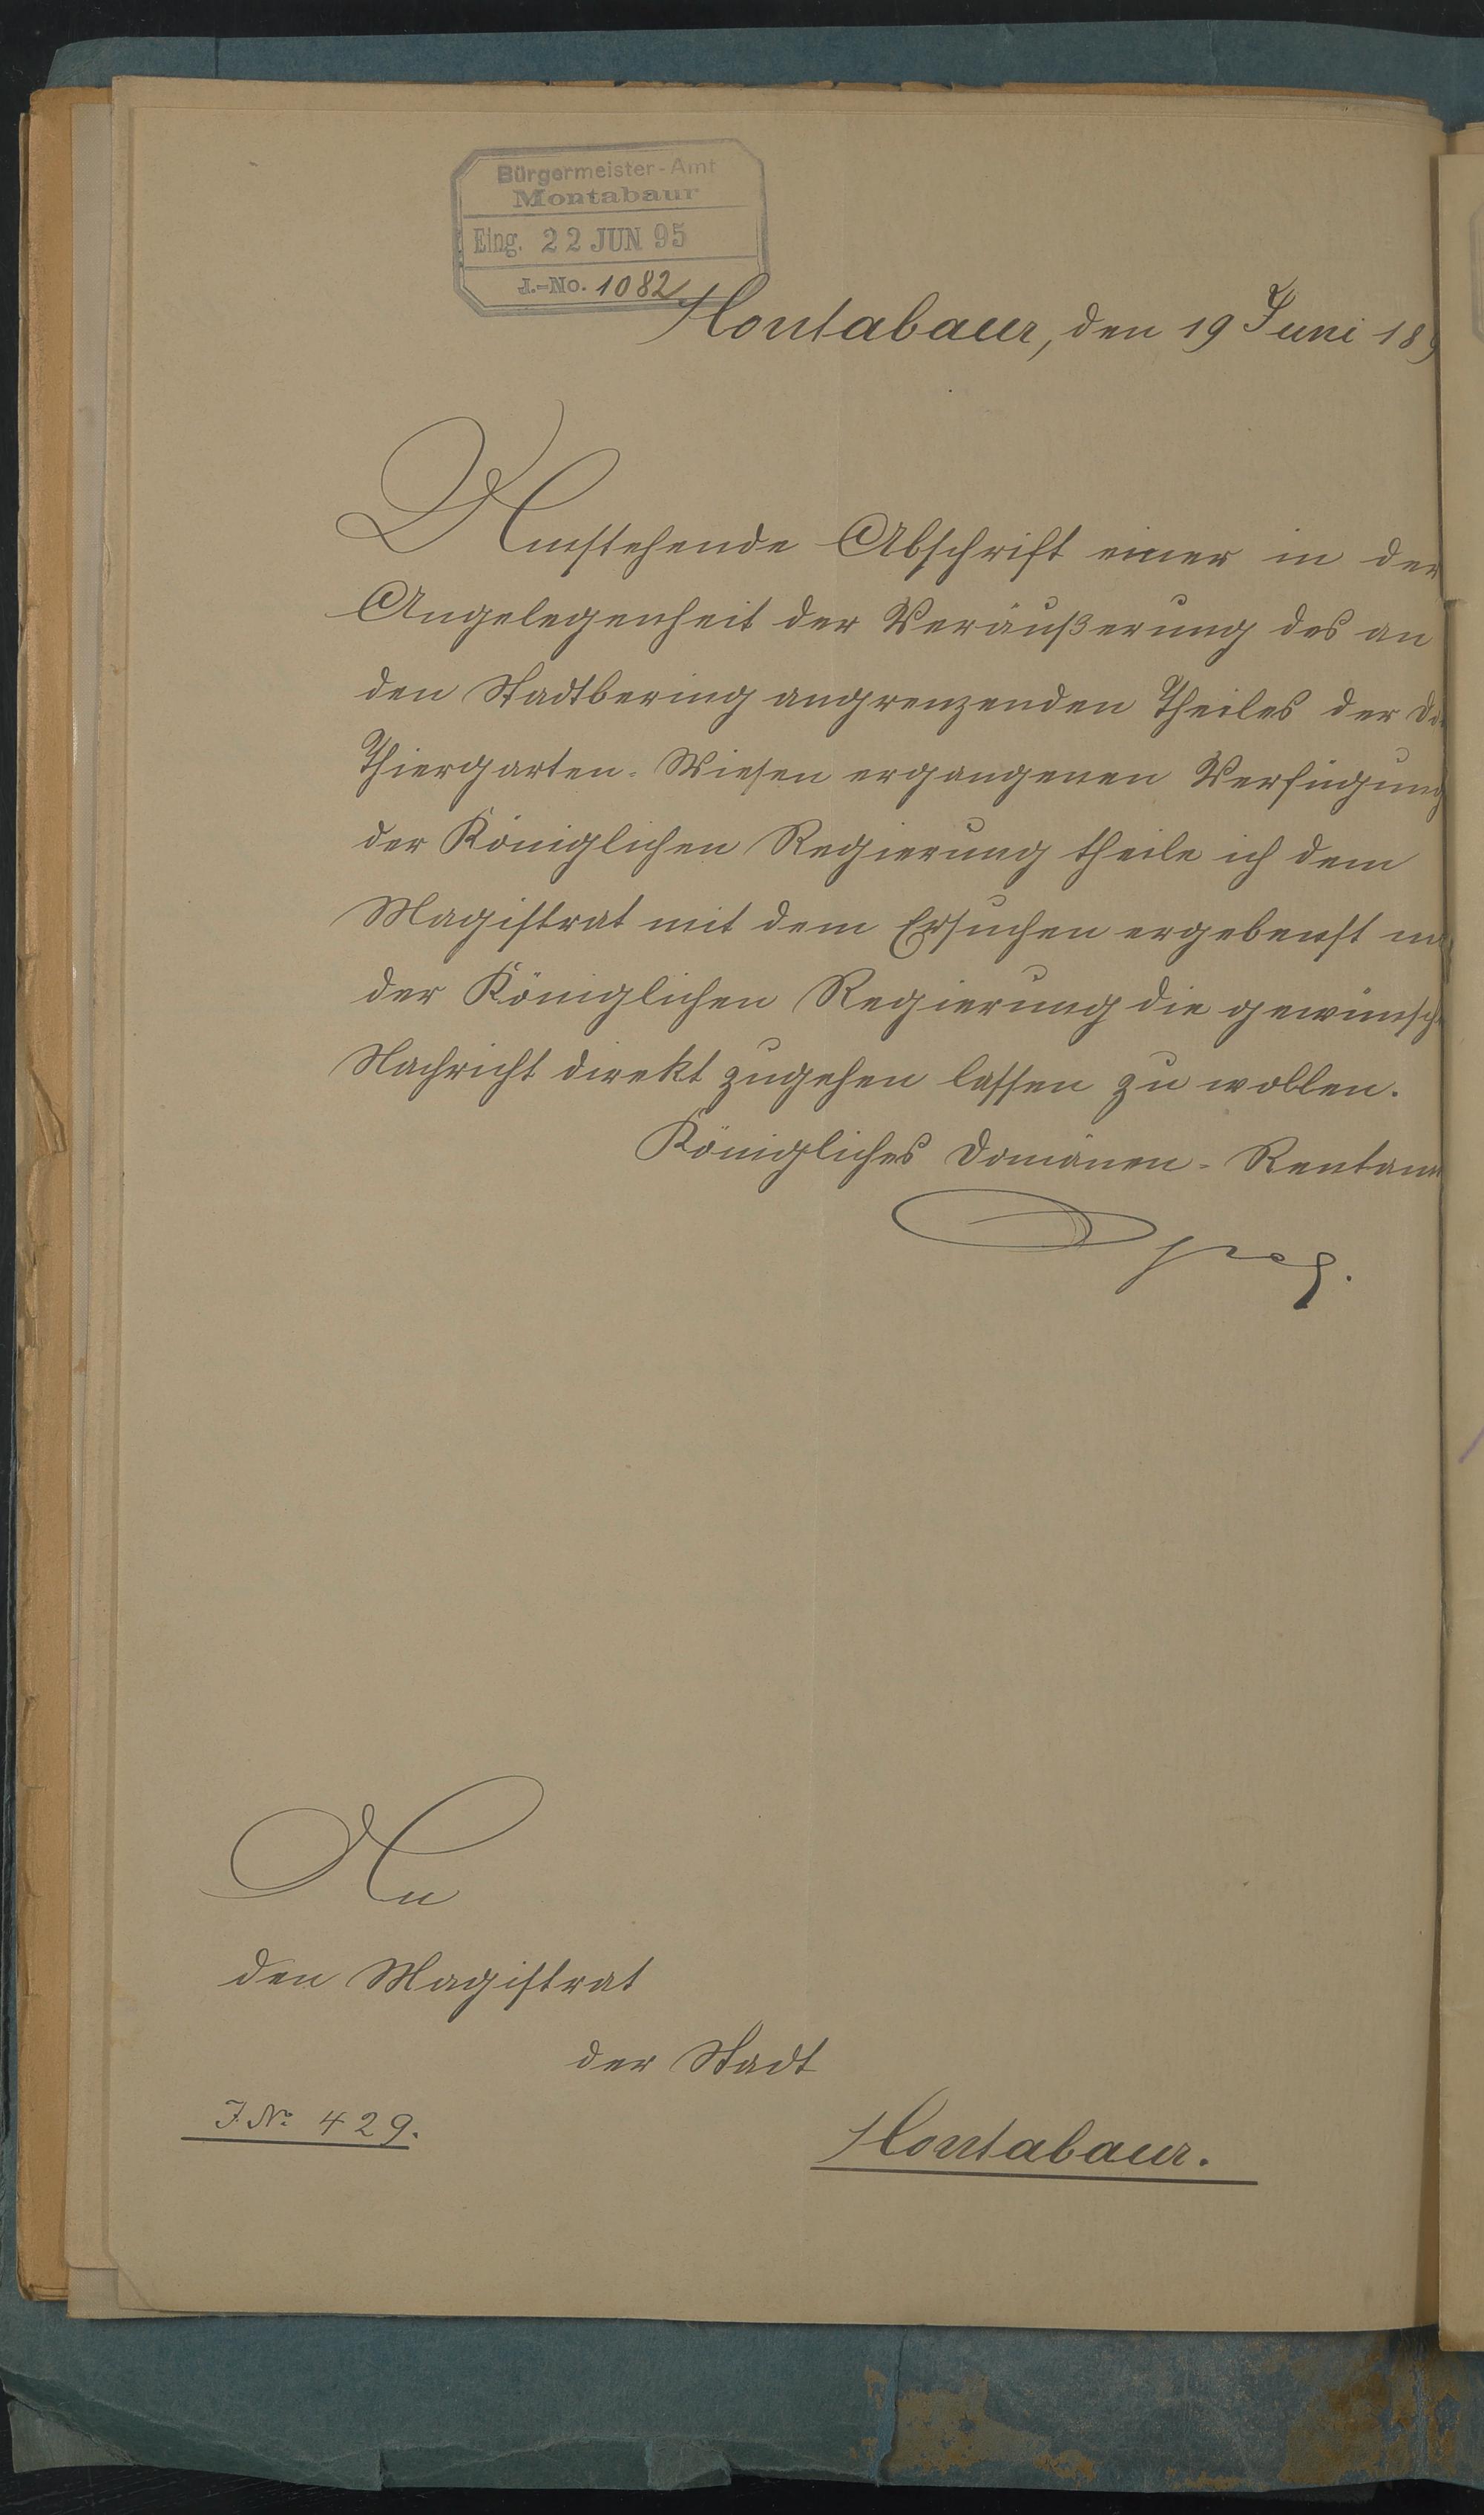 Bürgermeister-Amt
Montabaur
Eing. 22 JUN 95
J.-No. 1082
Montabaur, den 19 Juni 189
Umstehende Abschrift einer in der
Angelegenheit der Veräußerung des an
den Stadtbering angrenzenden Theiles der
Thiergarten-Wiesen ergangenen Verfügung
der Königlichen Regierung theile ich dem
Magistrat mit dem Ersuchen ergebenst
der Königlichen Regierung die gewünsch
Nachricht direkt zugehen lassen zu wollen.
Königliches Domänen-Rentam
An
den Magistrat
der Stadt
J. No 429.
Montabaur.